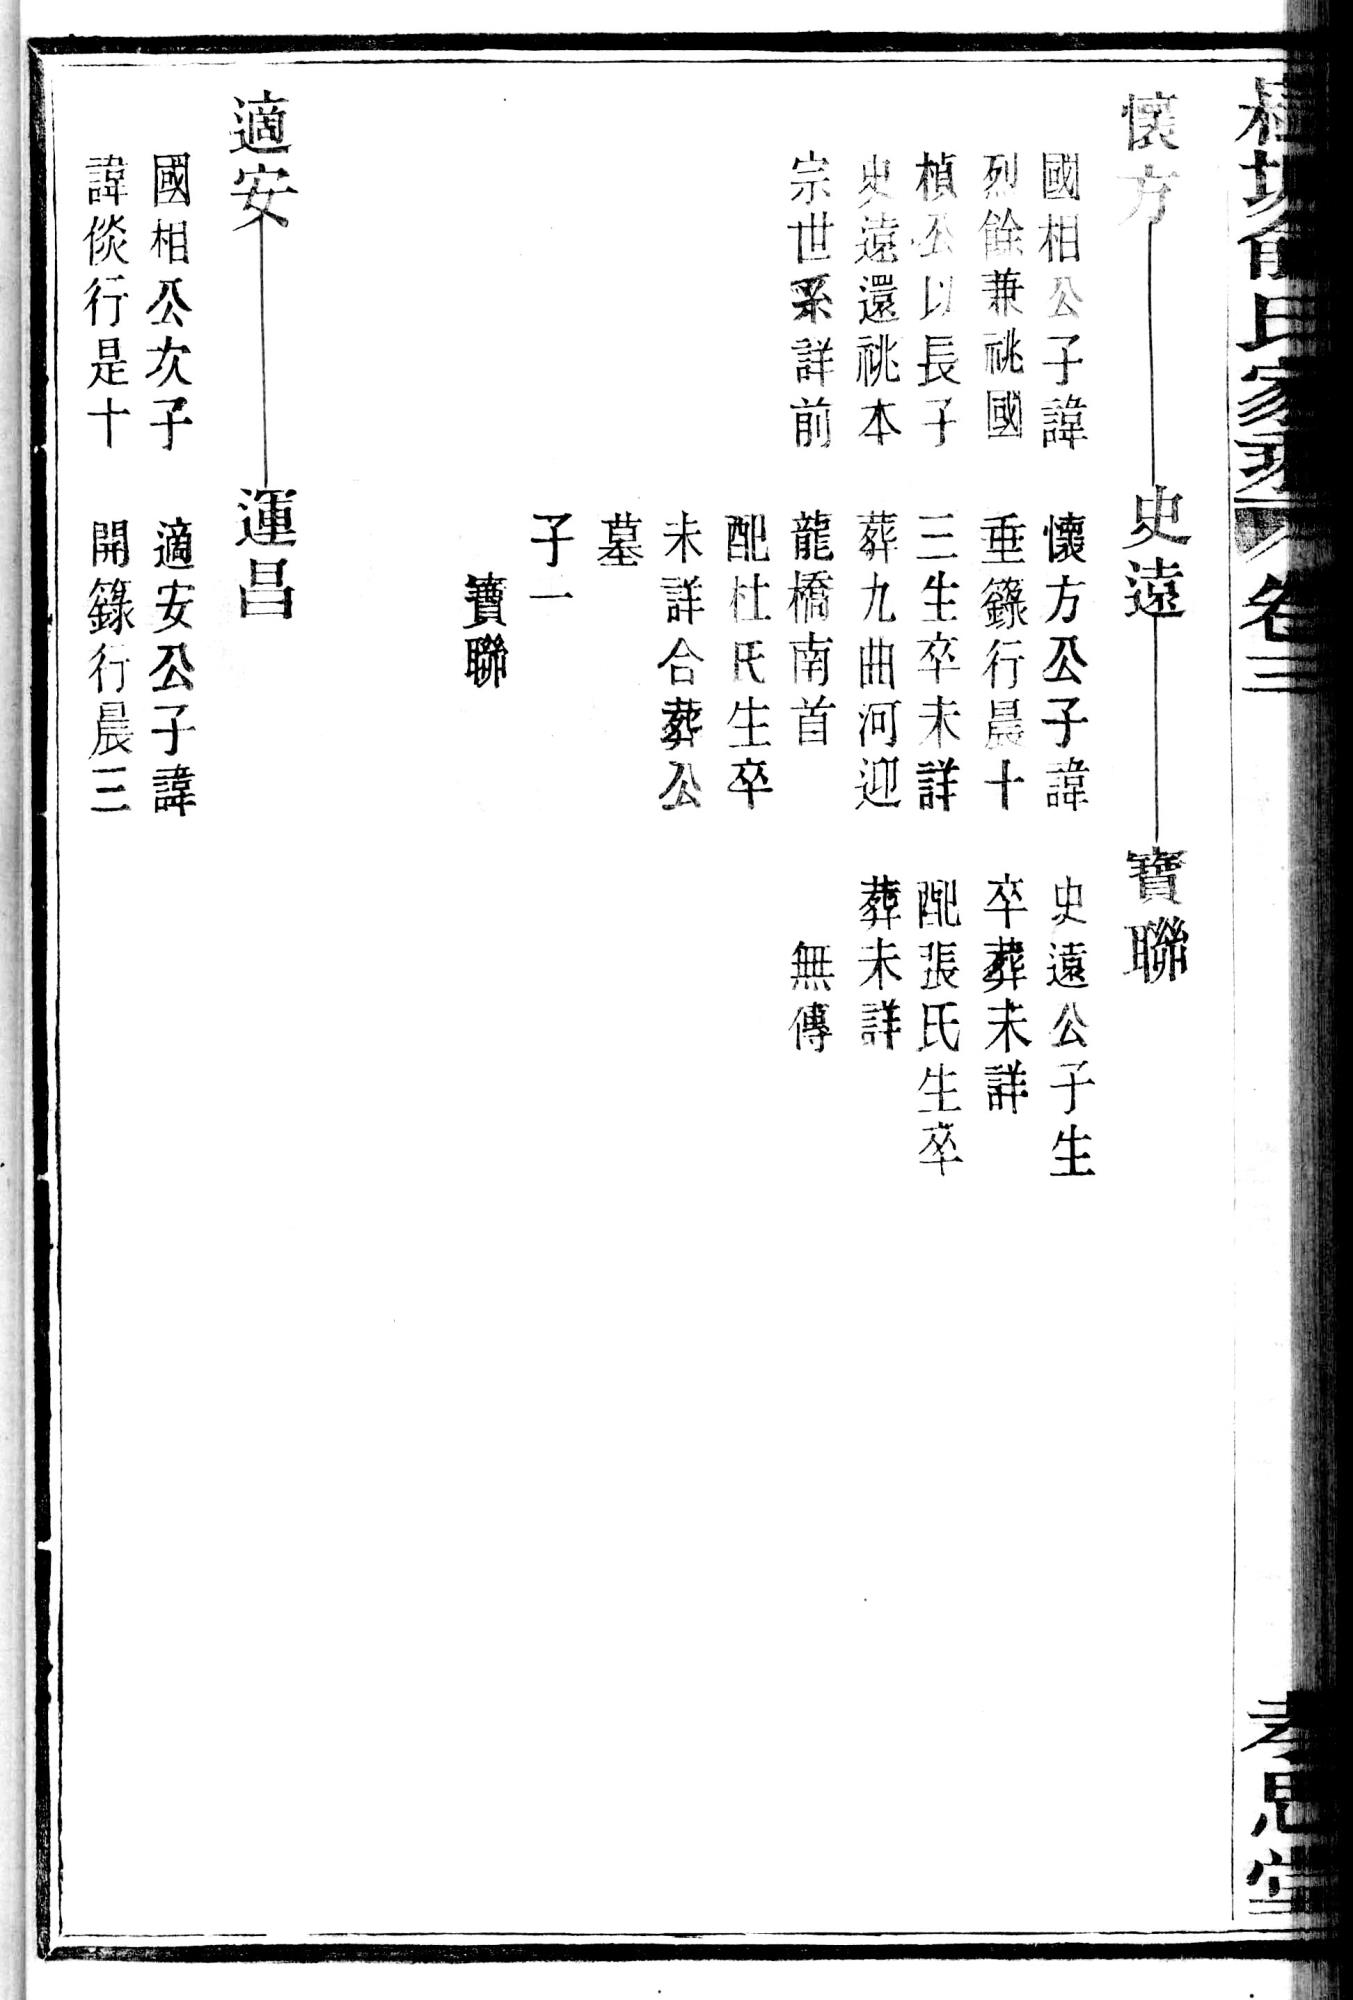 俞氏家乘 卷三
孝思堂
懷方
國相公子諱
烈餘兼祧國
楨公以長子
史遠還祧本
宗世系詳前
史遠
懷方公子諱
垂籙行晨十
三生卒未詳
葬九曲河迎
龍橋南首
配杜氏生卒
未詳合葬公
墓
子一
寶聯
寶聯
史遠公子生
卒葬未詳
配張氏生卒
葬未詳
無傳
適安
國相公次子
諱倓行是十
運昌
適安公子諱
開籙行晨三